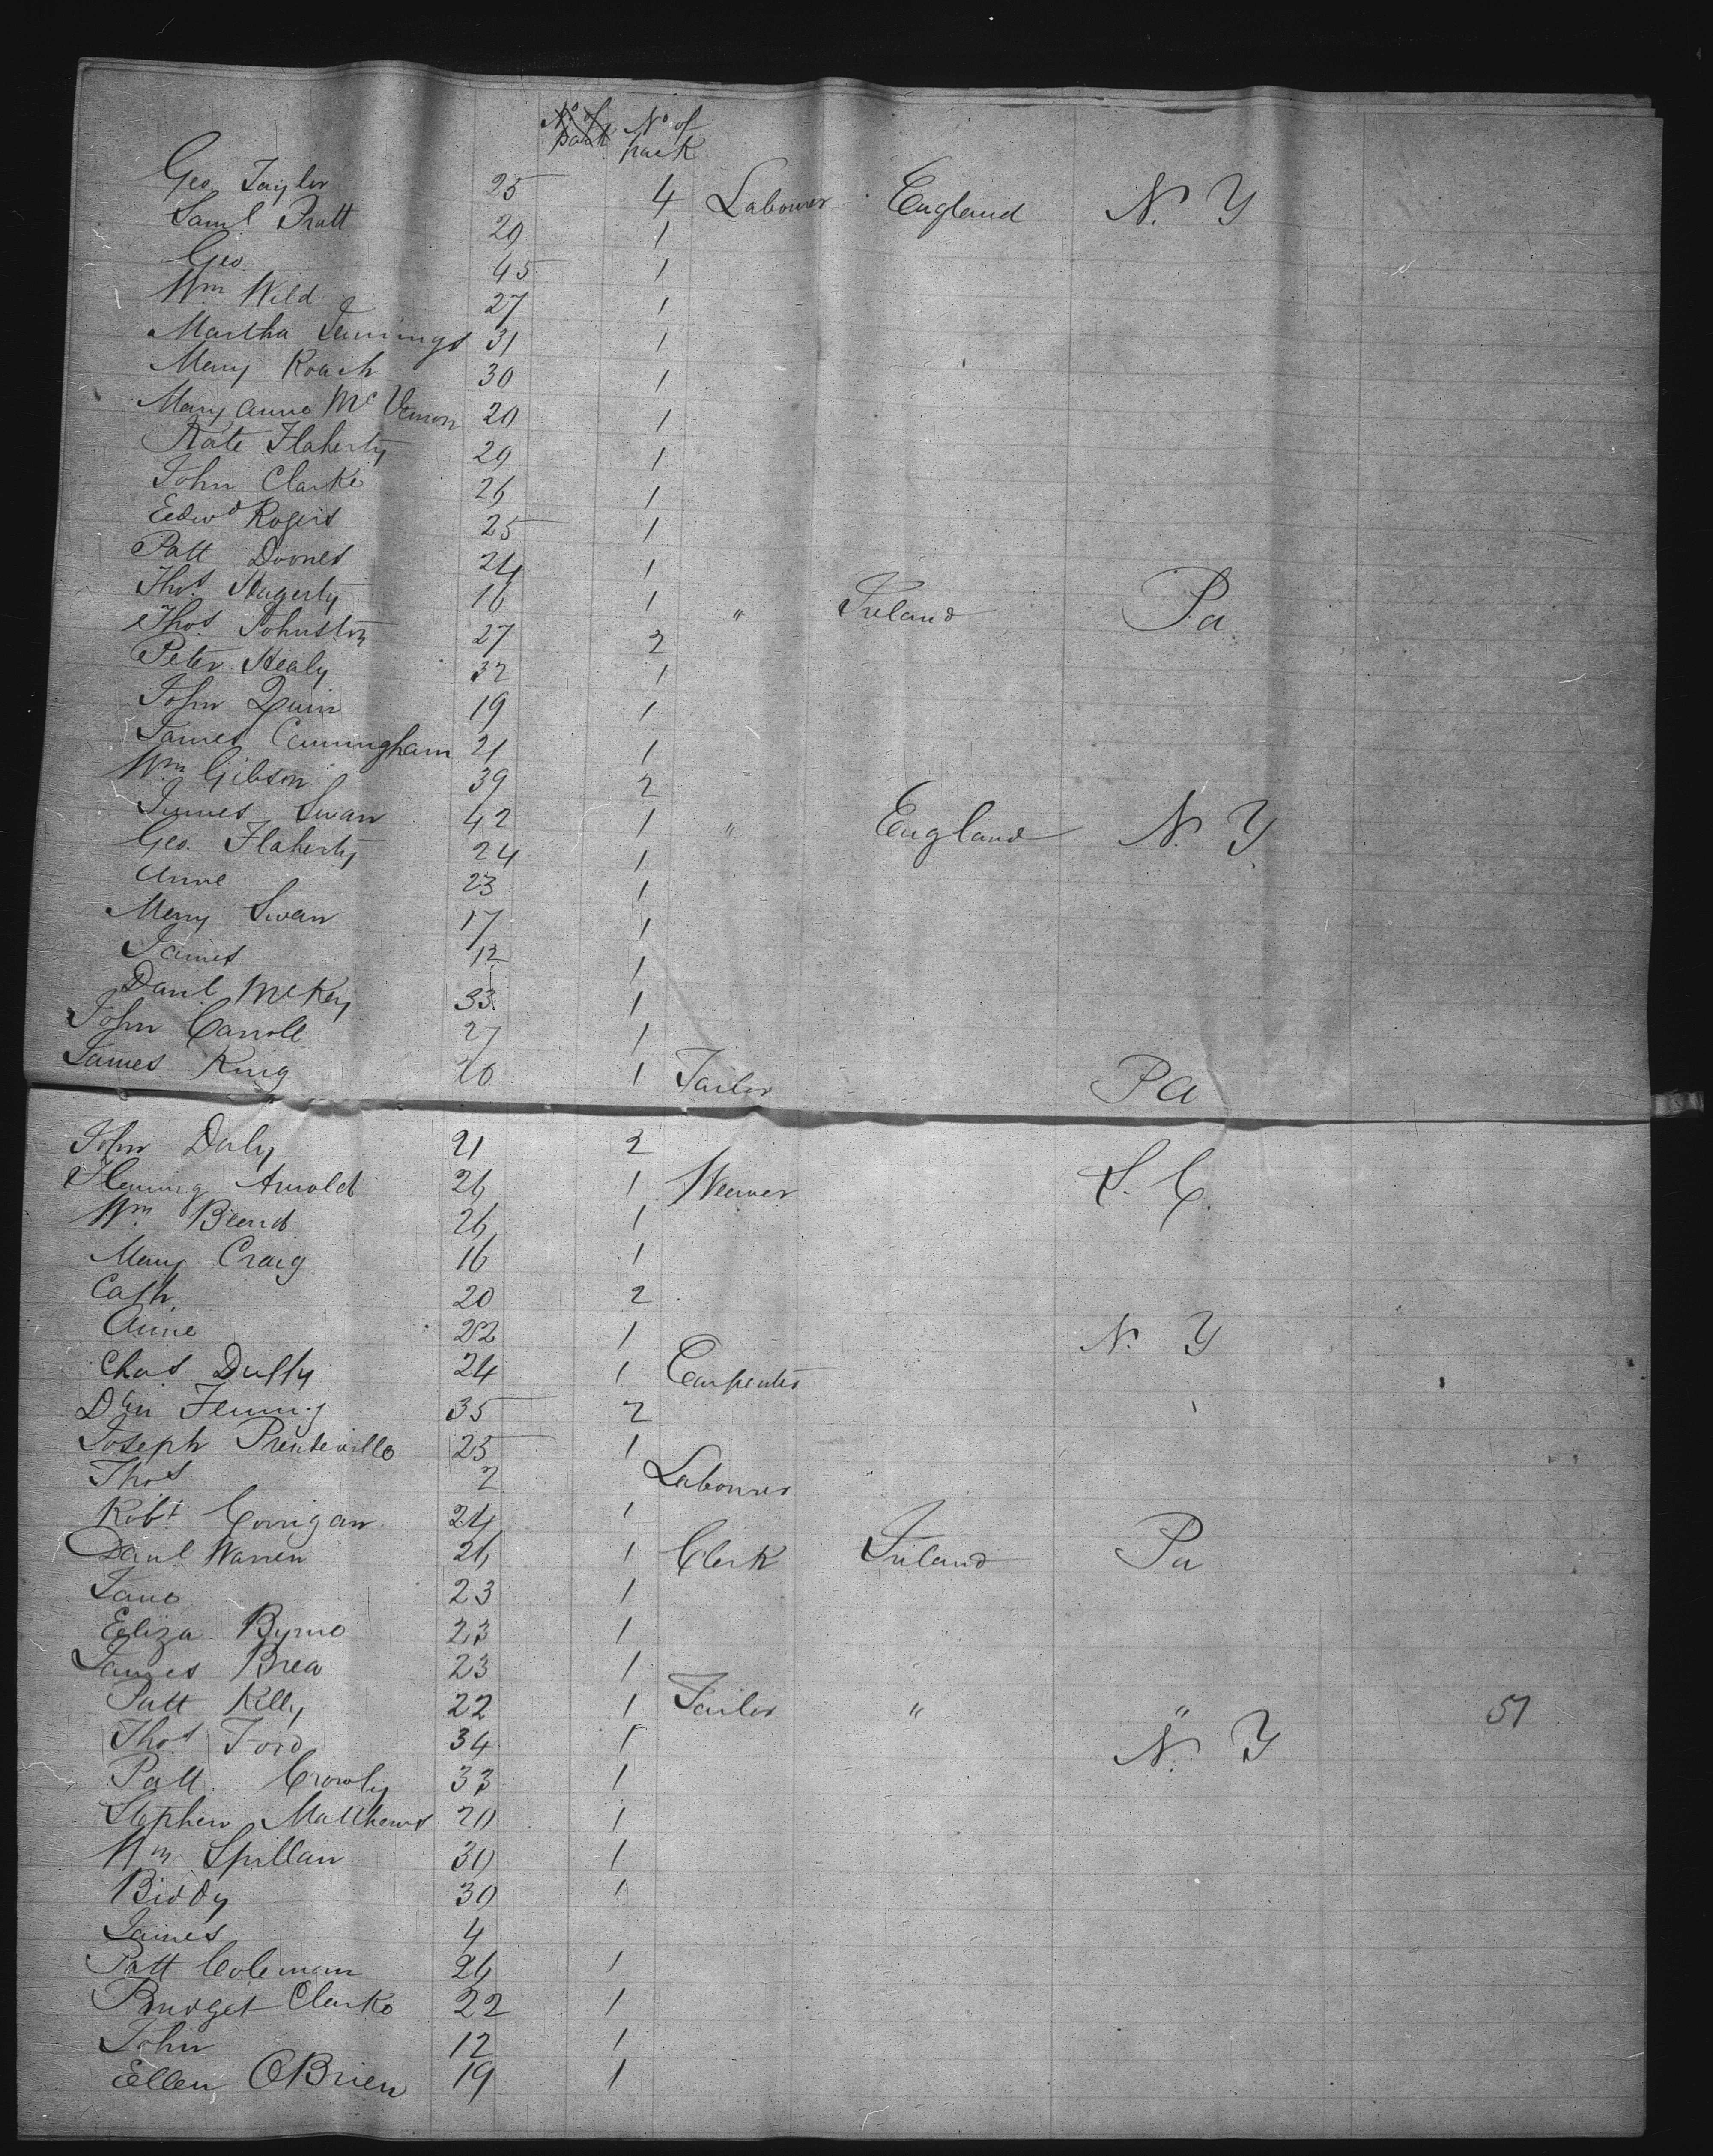 No of pack No of pack
Geo Taylor 25 4 Labourer England N. Y
Saml Pratt 20 1
Geo 45 1
Wm Wild 27 1
Martha Jennings 31 1
Mary Roach 30 1
Mary Anne Mc Vernon 20 1
Kate Flaherty 29 1
John Clarke 26 1
Edwd Rogers 25 1
Patt 24 1
Thos Hagerty 16 1 " Ireland Pa
Thos Johnston 27 2
Peter Healy 32 1
John Quin 19 1
James Cunningham 21 1
Wm Gibson 39 2
James Swan 42 1 " England N. Y
Geo. Flaherty 24 1
Anne 23 1
Mary Swan 17 1
James 12 1
Danl McKey 33 1
John Carroll 27 1
James King 1 Tailor Pa
John Daly 21 2
Fleming Arnold 26 1 Weaver S. C.
Wm 26 1
Mary Craig 16 1
Cath 20 2
Anne 22 1 N. Y
Chas Duffy 24 1 Carpenter
35 2
Joseph Prenteville 25 1
Thos 2 Labourer
Robt Corrigan 24 1
Danl Warren 26 1 Clerk Ireland Pa
Jane 23 1
Eliza Byrne 23 1
James Brea 23 1
Patt Kelly 22 1 Tailor " " 51
Thos Ford 34 1 N. Y
Patt. Crowly 33 1
Stephen Matthews 20 1
Wm Spillan 30 1
Biddy 30 1
James 4
Patt Coleman 26 1
Bridget Clarke 22 1
John 12 1
Ellen OBrien 19 1